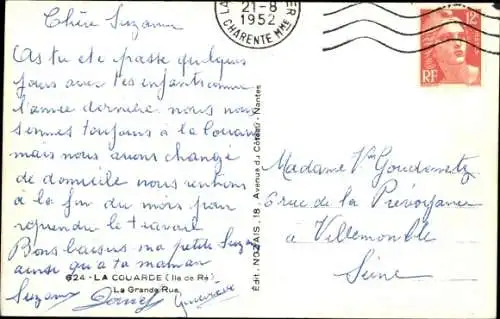 Chère Suzanne
As tu été passé quelques
jours avec tes enfants comme
l'année dernière nous nous
sommes toujours à la Couarde
mais nous avons changé
de domicile nous rentrons
à la fin du mois pour
reprendre le travail
Bons baisers ma petite Suzanne
ainsi qu'à ta maman
Suzanne Geneviève
624 - LA COUARDE (Ile de Ré)
La Grande Rue
Édit. NOZAIS, 18, Avenue du Côteau - Nantes
LA
21-8
1952
CHARENTE MME
12F
RF
Madame Vve
6 rue de la Prévoyance
à Villemomble
Seine